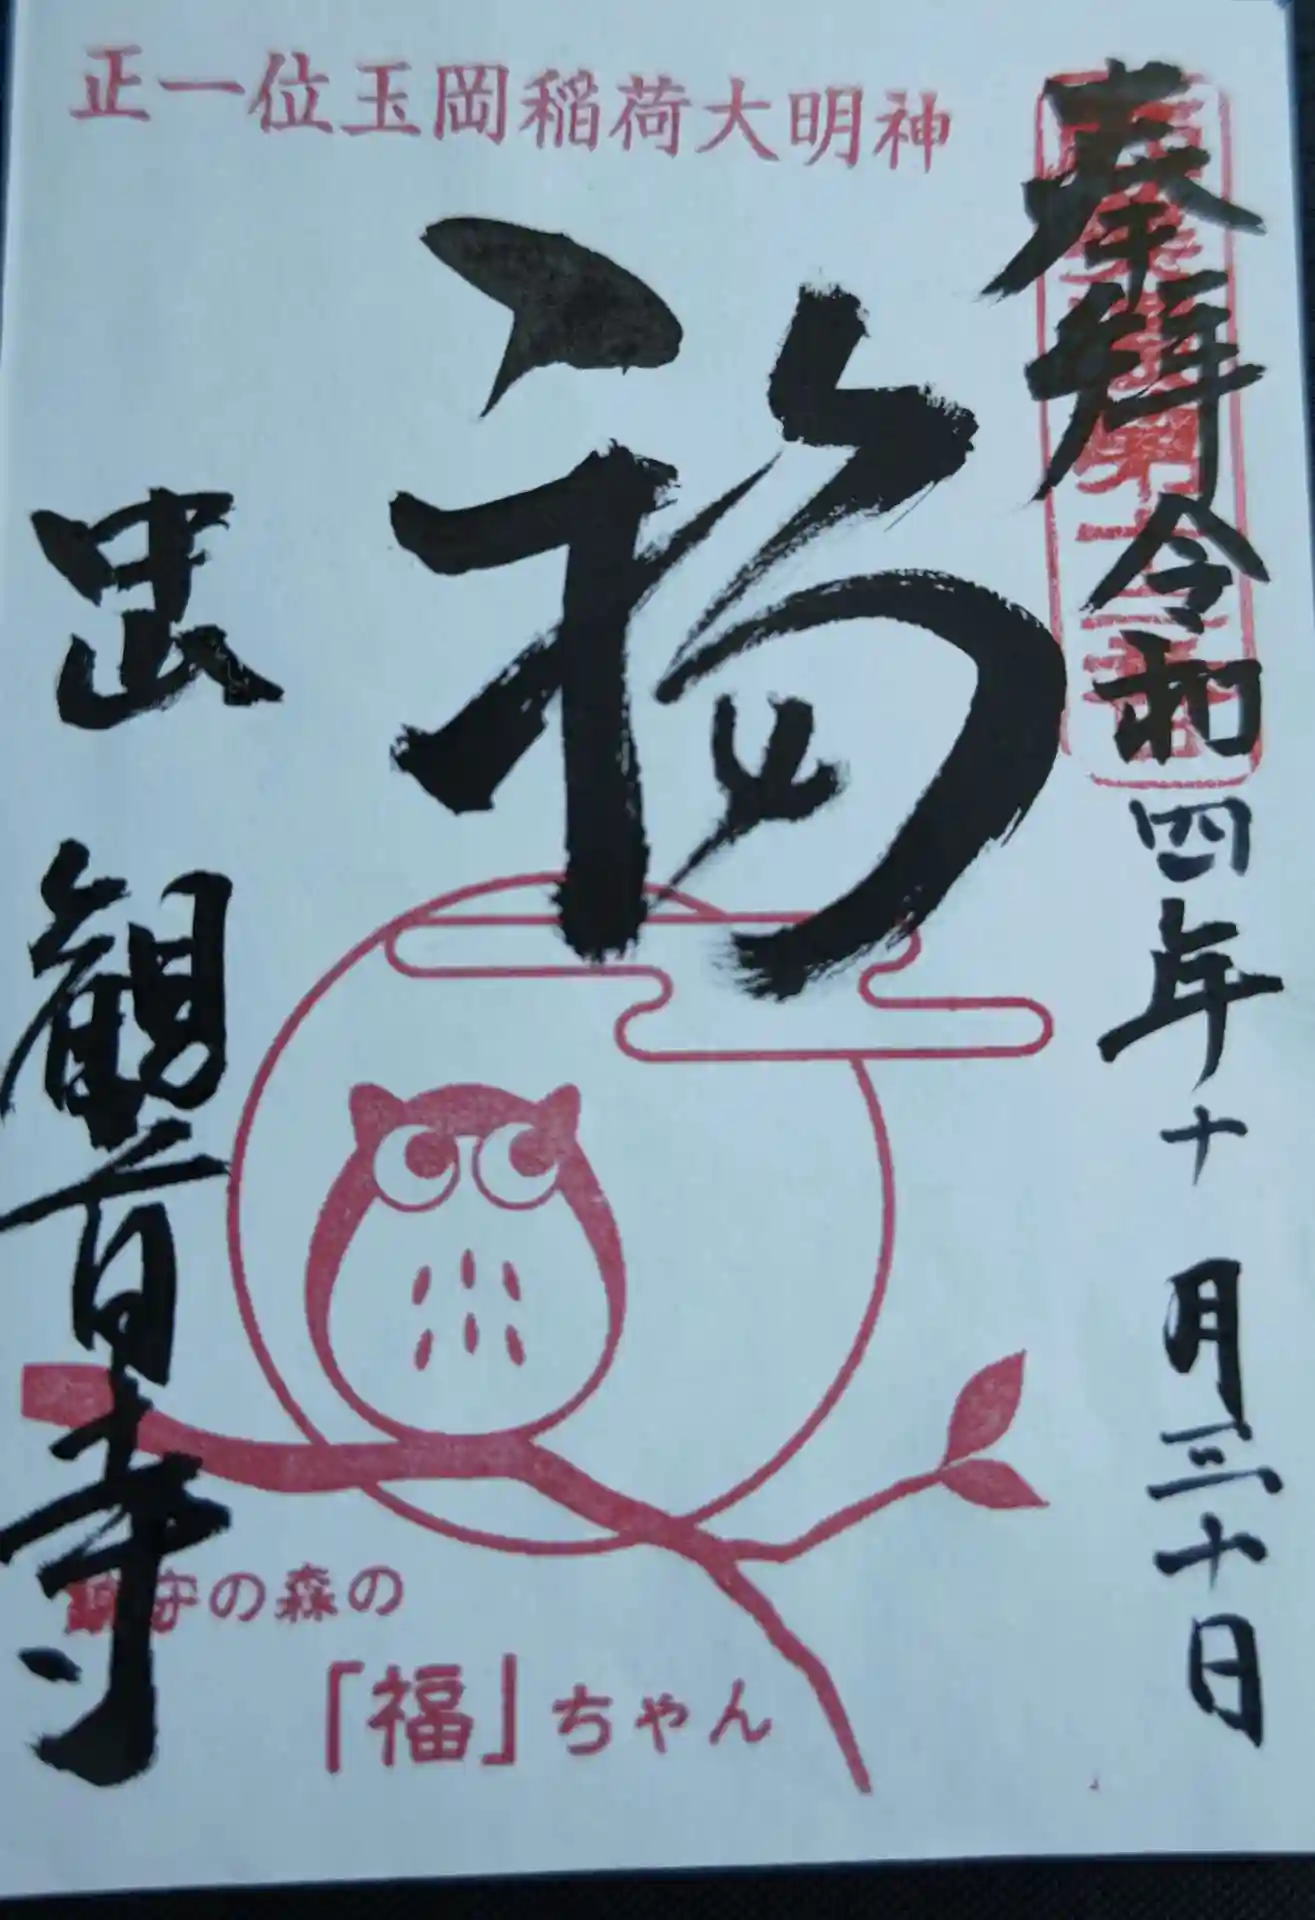 正一位玉岡稲荷大明神
奉拜 令和四年十月三十日
福
出 観音寺
鎮守の森の
「福」ちゃん